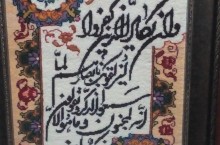 وإن يكاد الذين كفروا
ليزلقونك بأبصارهم لما
سمعوا الذكر ويقولون
إنه لمجنون وما هو إلا